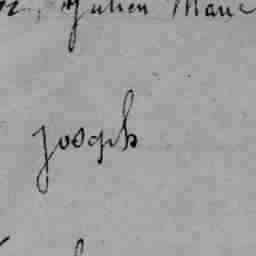 Julien Marie
Joseph